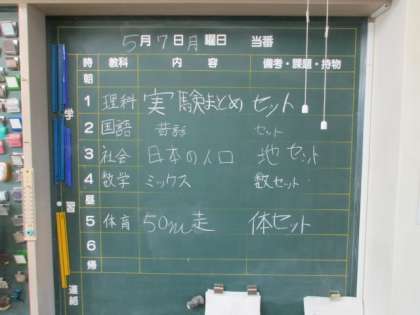 5月7日月曜日 当番
時 教科 内容 備考・課題・持物
朝
1 理科 実験まとめ セット
2 国語 昔話 セット
3 社会 日本の人口 地セット
4 数学 ミックス 数セット
昼
5 体育 50m走 体セット
6
帰
学習
連絡